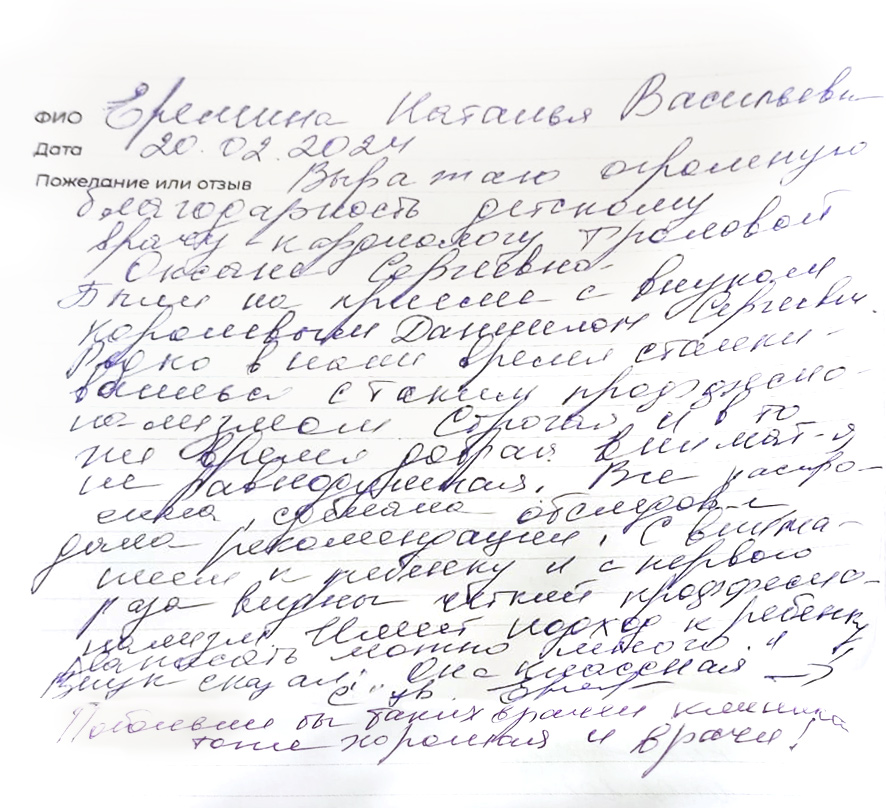 ФИО Еремина Наталья Васильевн
Дата 20.02.2024
Пожелание или отзыв Выражаю огромную
благодарность детскому
врачу-кардиологу Фроловой
Оксане Сергеевне.
Были на приеме с внуком
Королевым Даниилом Сергеевич.
Редко в наши время сталки-
ваешься с таким профессио-
нализмом Строгая и в то
же время добрая внимат-я
не равнодушная. Все расспро-
сила, сделала обследов-е
дала рекомендации. С внима-
нием к ребенку и с первого
раза видны четкий профессио-
нализм. Имеет подход к ребенку
Написать можно много.
Внук сказал: "Она классная"
Побольше бы таких врачей клиника
тоже хорошая и врачи!